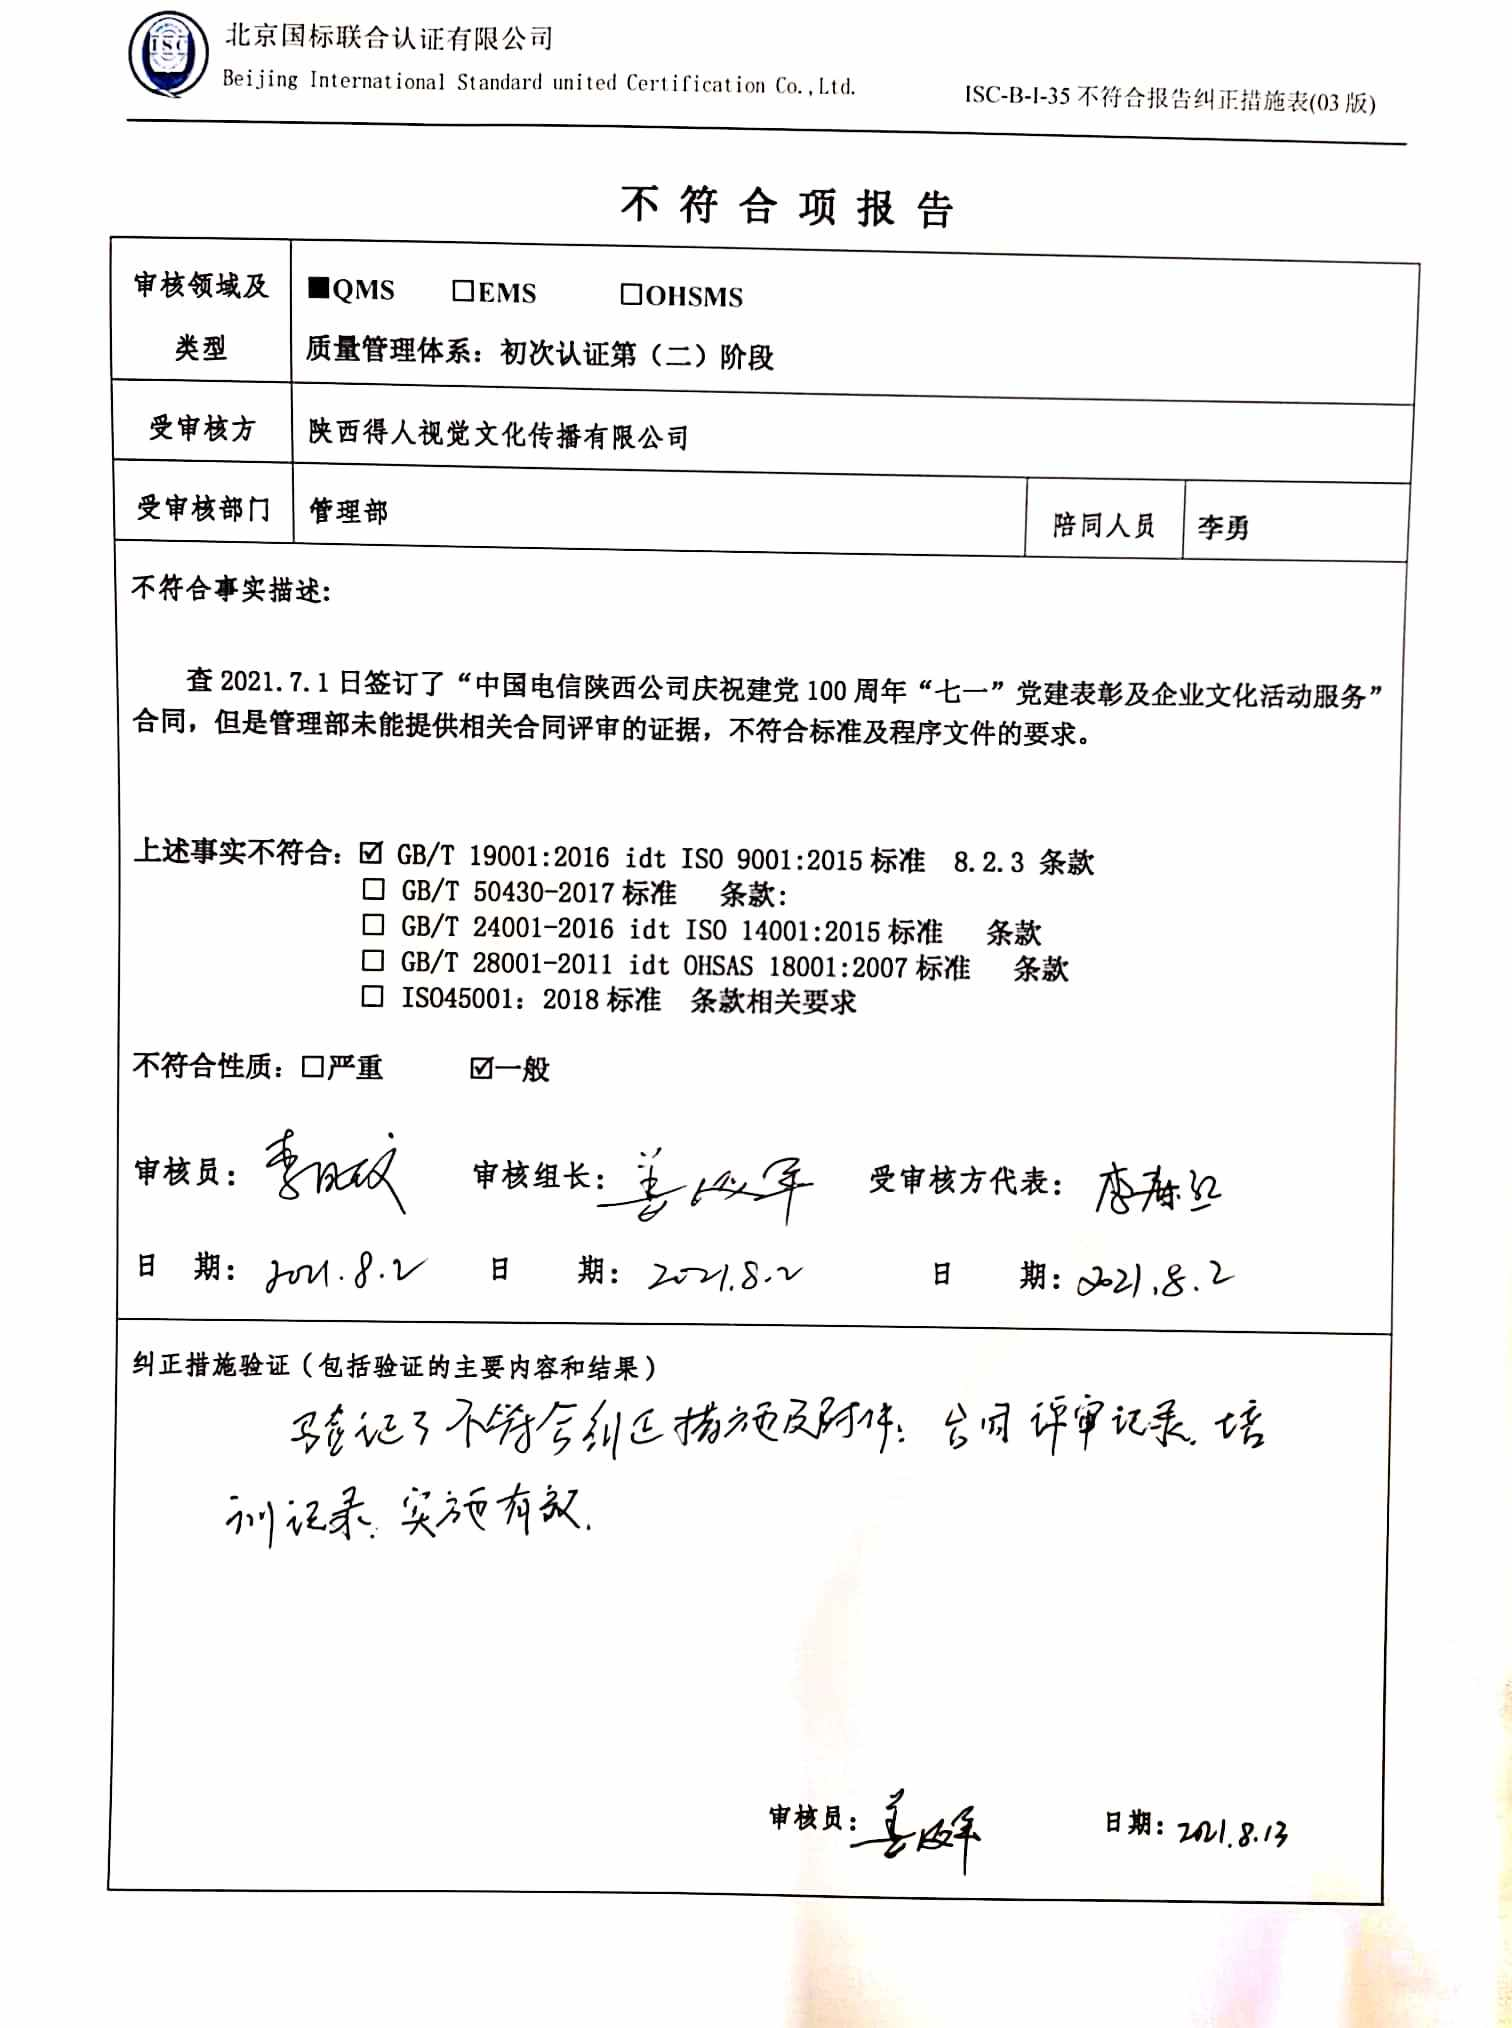 ISC
北京国标联合认证有限公司
Beijing International Standard united Certification Co.,Ltd.
ISC-B-I-35 不符合报告纠正措施表(03 版)
不符合项报告
审核领域及
类型
■QMS □EMS □OHSMS
质量管理体系：初次认证第（二）阶段
受审核方 陕西得人视觉文化传播有限公司
受审核部门 管理部 陪同人员 李勇
不符合事实描述:
查 2021.7.1 日签订了“中国电信陕西公司庆祝建党 100 周年“七一”党建表彰及企业文化活动服务”
合同，但是管理部未能提供相关合同评审的证据，不符合标准及程序文件的要求。
上述事实不符合：☑ GB/T 19001:2016 idt ISO 9001:2015 标准 8.2.3 条款
□ GB/T 50430-2017 标准 条款：
□ GB/T 24001-2016 idt ISO 14001:2015 标准 条款
□ GB/T 28001-2011 idt OHSAS 18001:2007 标准 条款
□ ISO45001：2018 标准 条款相关要求
不符合性质：□严重 ☑一般
审核员： 审核组长： 受审核方代表：
日 期：2021.8.2 日 期：2021.8.2 日 期：2021.8.2
纠正措施验证（包括验证的主要内容和结果）
验证了不符合纠正措施及附件：合同评审记录、培
训记录、实施有效.
审核员： 日期：2021.8.13